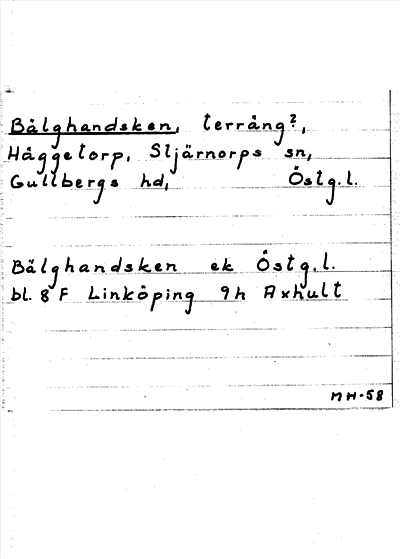 Bälghandsken, terräng?,
Häggetorp, Stjärnorps sn,
Gullbergs hd, Östg.l.
Bälghandsken ek Östg.l.
bl. 8 F Linköping 9h Axhult
MH-58